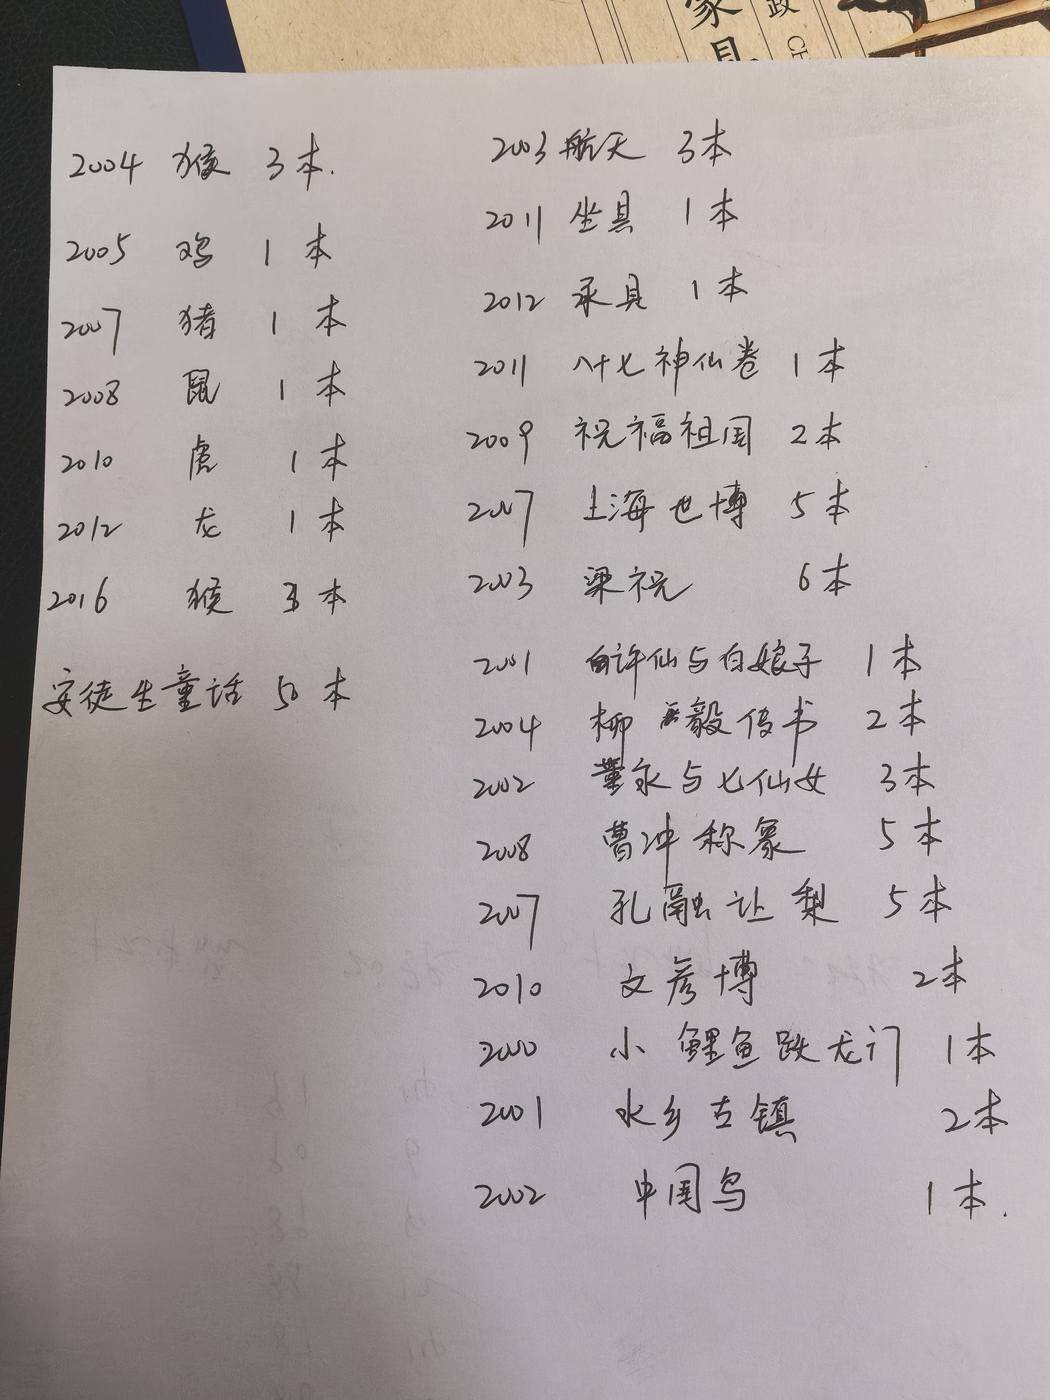 家具
政
CH
2004 猴 3本.
2005 鸡 1本
2007 猪 1本
2008 鼠 1本
2010 虎 1本
2012 龙 1本
2016 猴 3本
安徒生童话 50本
2003 航天 3本
2011 坐具 1本
2012 承具 1本
2011 八十七神仙卷 1本
2009 祝福祖国 2本
2007 上海世博 5本
2003 梁祝 6本
2001 许仙与白娘子 1本
2004 柳毅传书 2本
2002 董永与七仙女 3本
2008 曹冲称象 5本
2007 孔融让梨 5本
2010 文彦博 2本
2000 小鲤鱼跃龙门 1本
2001 水乡古镇 2本
2002 中国鸟 1本.